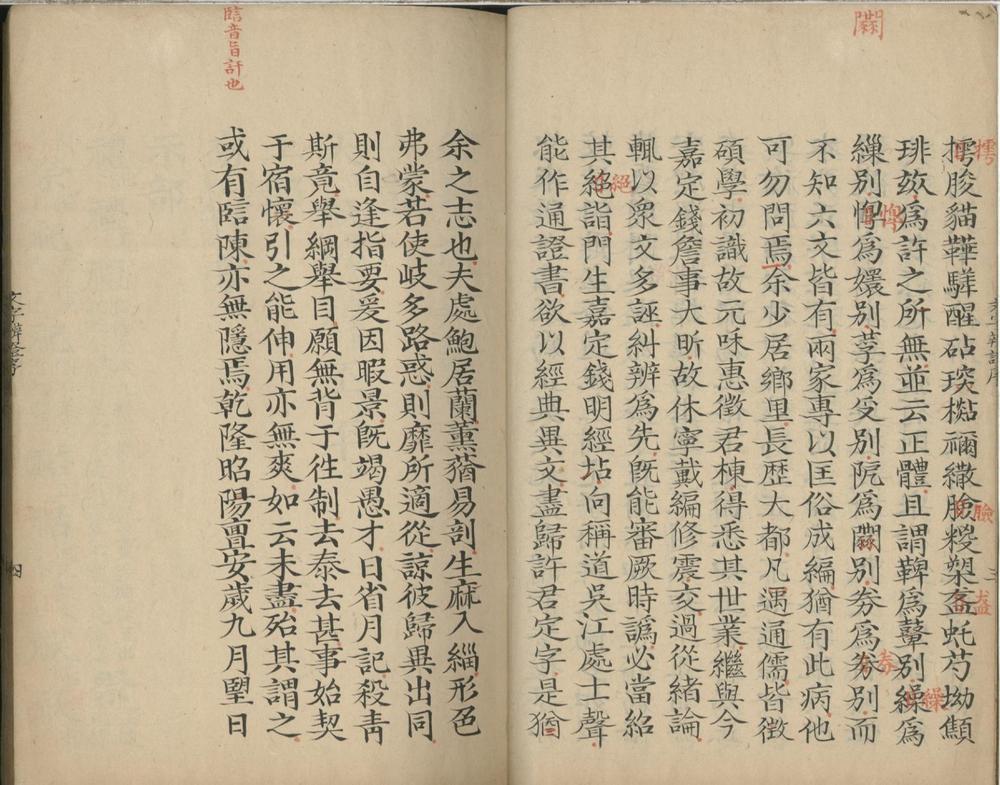 闞
摴朘貓鞾驊醒砧瑛㮛禰繖臉糉槊盇虴芍坳顛
琲玈爲許之所無並云正體且謂鞞爲鼙別繰爲
繅別惸爲嬛別莩爲受別阮爲闞別劵爲券別而
不知六文皆有兩家專以匡俗成編猶有此病他
可勿問焉余少居鄉里長歷大都凡遇通儒皆徵
碩學初識故元咊惠徵君棟得悉其世業繼與今
嘉定錢詹事大昕故休寧戴編修震交過從緒論
輒以衆文多誣糾辨爲先旣能審厥時譌必當紹
其絕詣門生嘉定錢明經坫向稱道吳江處士聲
能作通證書欲以經典異文盡歸許君定字是猶
余之志也夫處鮑居蘭薰蕕易剖生麻入緇形色
弗蒙若使岐多路惑則靡所適從諒彼歸異出同
則自逢指要爰因暇景旣竭愚才日省月記殺靑
斯竟舉綱舉目願無背于徃制去泰去甚事始契
于宿懷引之能伸用亦無爽如云未盡殆其謂之
或有䀼陳亦無隱焉乾隆昭陽亶安歲九月朢日
䀼音旨訐也